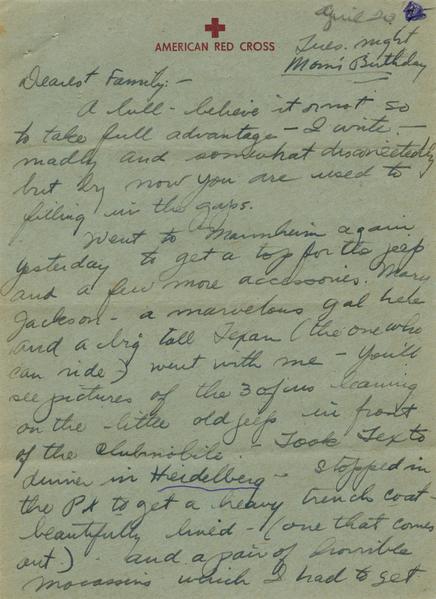 April 20
AMERICAN RED CROSS
Tues. night
Mom's Birthday
Dearest Family: -
A lull - believe it or not so
to take full advantage - I write -
madly and somewhat disconnectedly
but by now you are used to
filling in the gaps.
Went to Mannheim again
yesterday to get a top for the jeep
and a few more accessories. Mary
Jackson - a marvelous gal here
and a big tall Texan (the one who
can ride -) went with me - you'll
see pictures of the 3 of us leaning
on the little old jeep in front
of the clubmobile. - Took Tex to
dinner in Heidelberg - stopped in
the PX to get a heavy trench coat
beautifully lined - (one that comes
out.) - and a pair of horrible
mocassins which I had to get